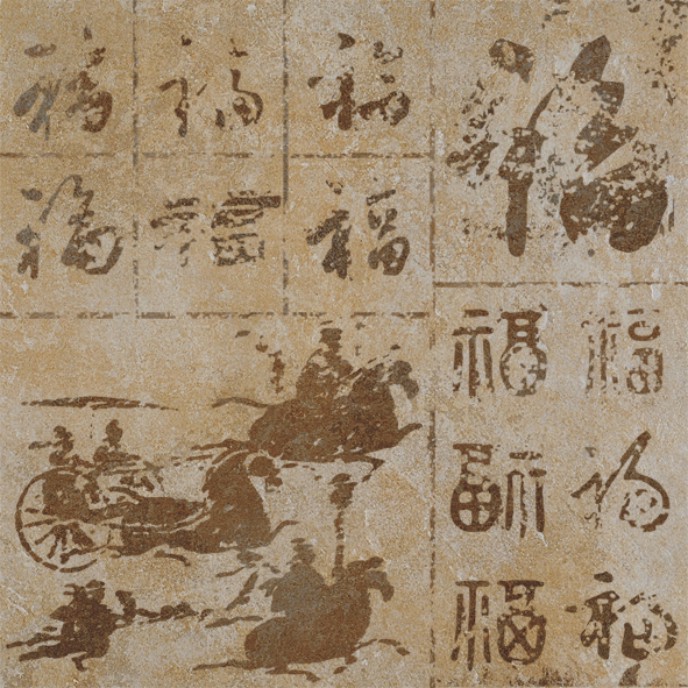 福 福 福 福
福 福 福
福 福
福 福
福 福